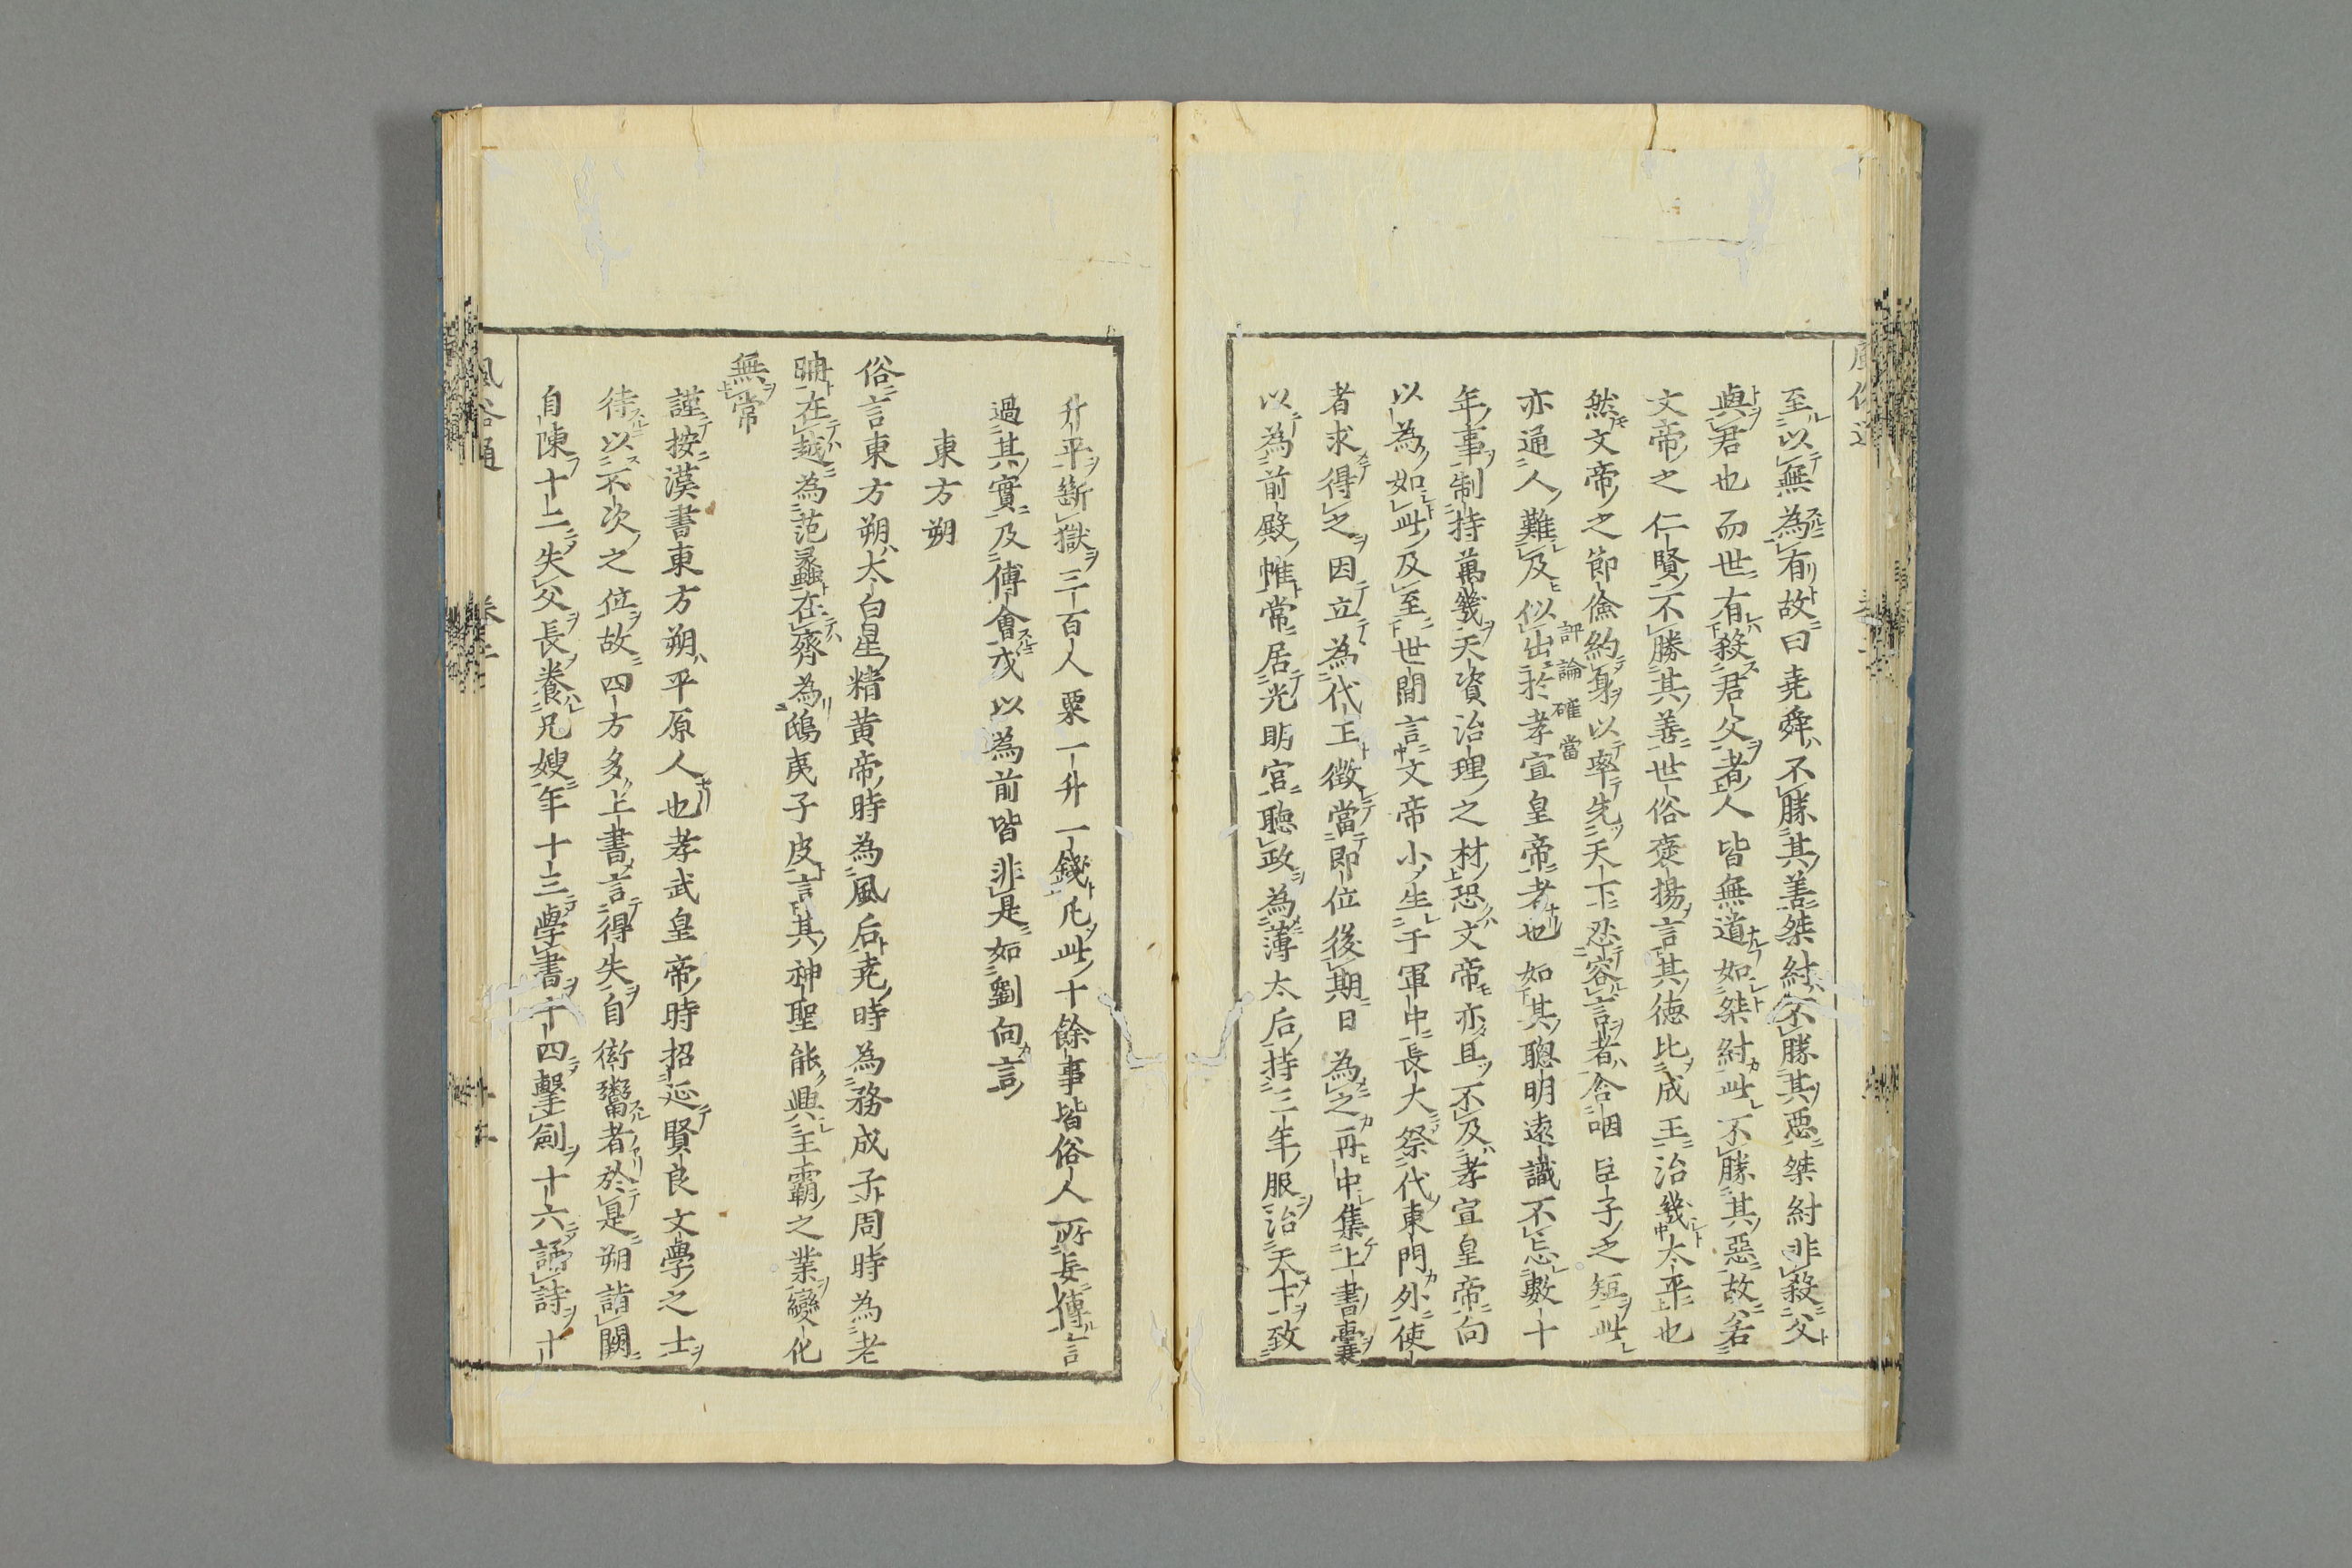 至以無為有故曰堯舜不勝其善桀紂不勝其惡桀紂非殺父
與君也而世有殺君父者人皆無道如桀紂此不勝其惡故若
文帝之仁賢不勝其善世俗褒揚言其德比成王治幾太平也
然文帝之節儉約身以率先天下忍容言者含咽臣子之短此
評論確當
亦通人難及似出於孝宣皇帝者也如其聰明遠識不忘數十
年事制持萬幾天資治理之材恐文帝亦且不及孝宣皇帝向
以為如此及至世間言文帝小生于軍中長大祭代東門外使
者求得之因立為代王徵當即位後期日為之再中集上書囊
以為前殿帷常居光明宮聽政為薄太后持三年服治天下致
升平斷獄三百人粟一升一錢凡此十餘事皆俗人所妄傳言
過其實及傅會或以為前皆非是如劉向言
東方朔
俗言東方朔太白星精黃帝時為風后堯時為務成子周時為老
聃在越為范蠡在齊為鴟夷子皮言其神聖能興王霸之業變化
無常
謹按漢書東方朔平原人也孝武皇帝時招延賢良文學之士
待以不次之位故四方多上書言得失自衒鬻者於是朔詣闕
自陳十二失父長養兄嫂年十三學書十四擊劍十六誦詩十
風俗通